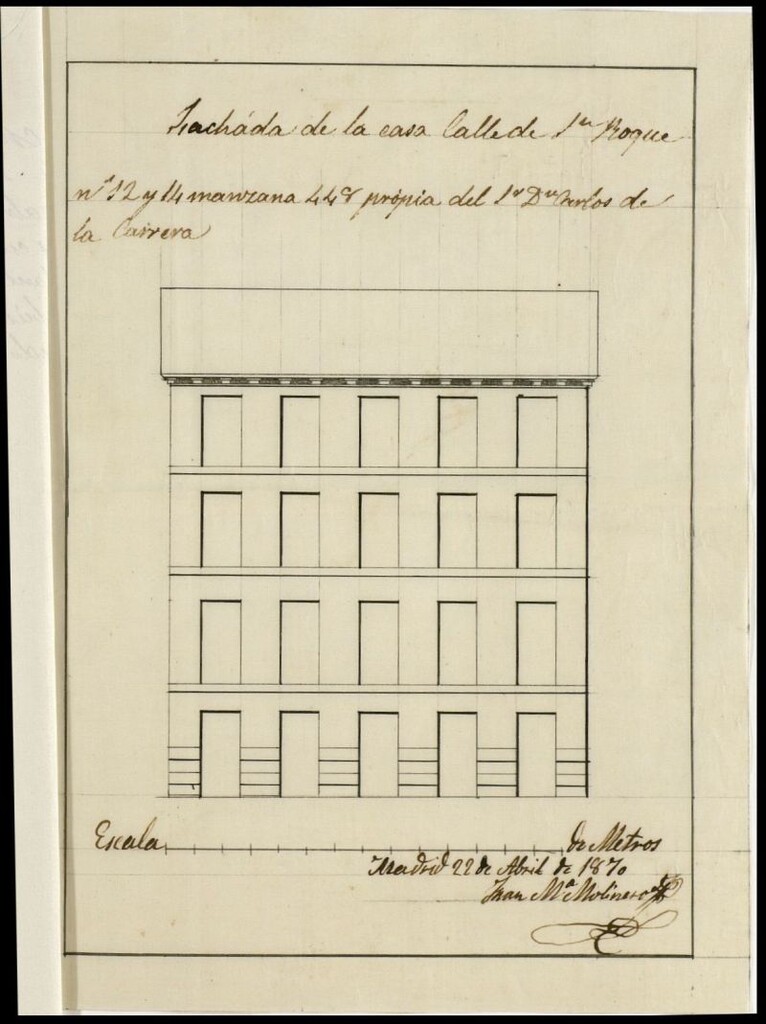 Facháda de la casa Calle de Sn Roque
nº 12 y 14 manzana 448 própia del Sr Dn Carlos de
la Carrera
Escala de Metros
Madrid 22 de Abril de 1870
Juan Mª Molinero